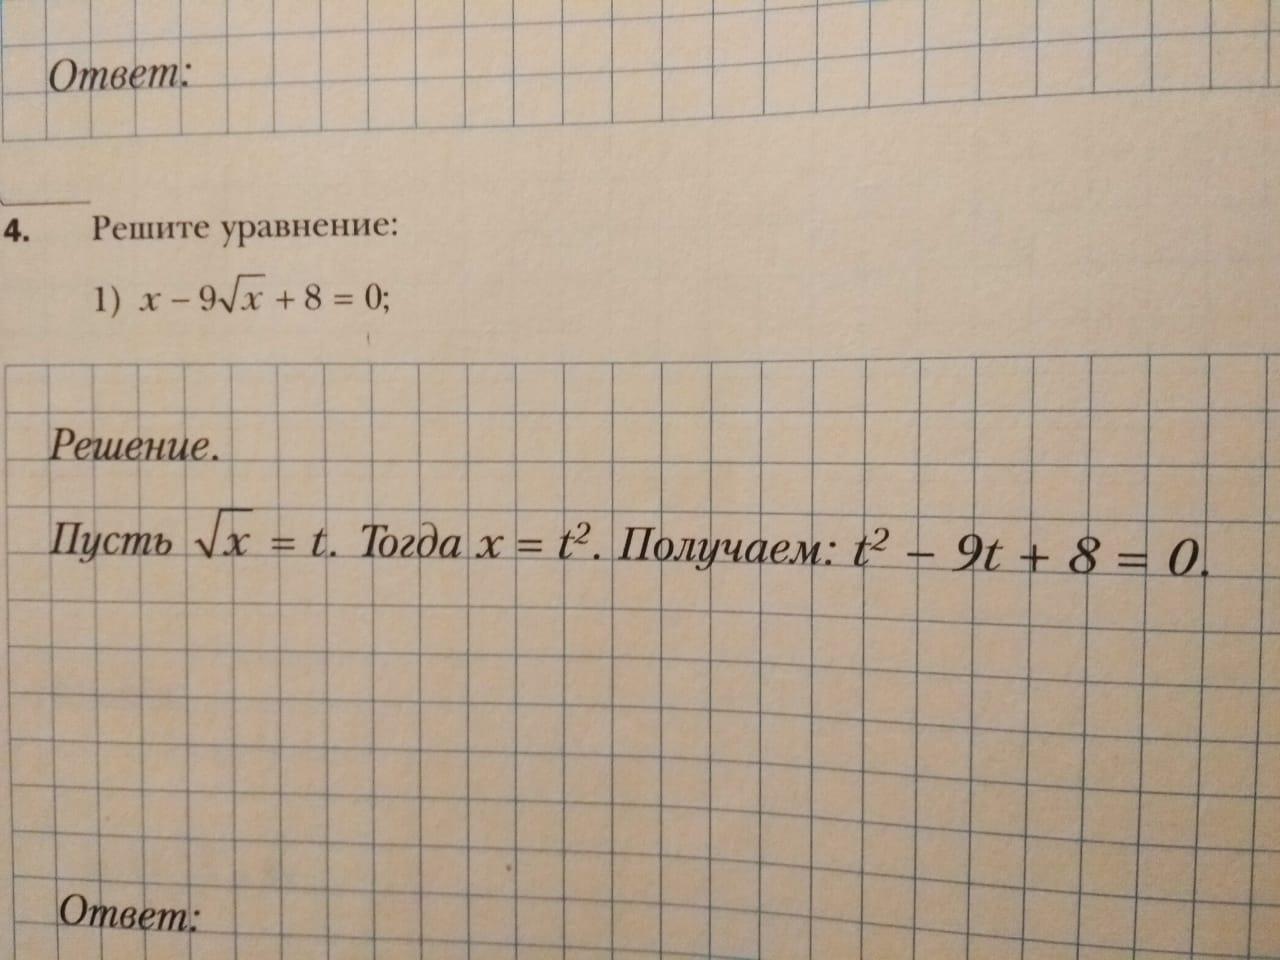 Ответ:
4. Решите уравнение:
1) x – 9√x + 8 = 0;
Решение.
Пусть √x = t. Тогда x = t². Получаем: t² – 9t + 8 = 0.
Ответ: